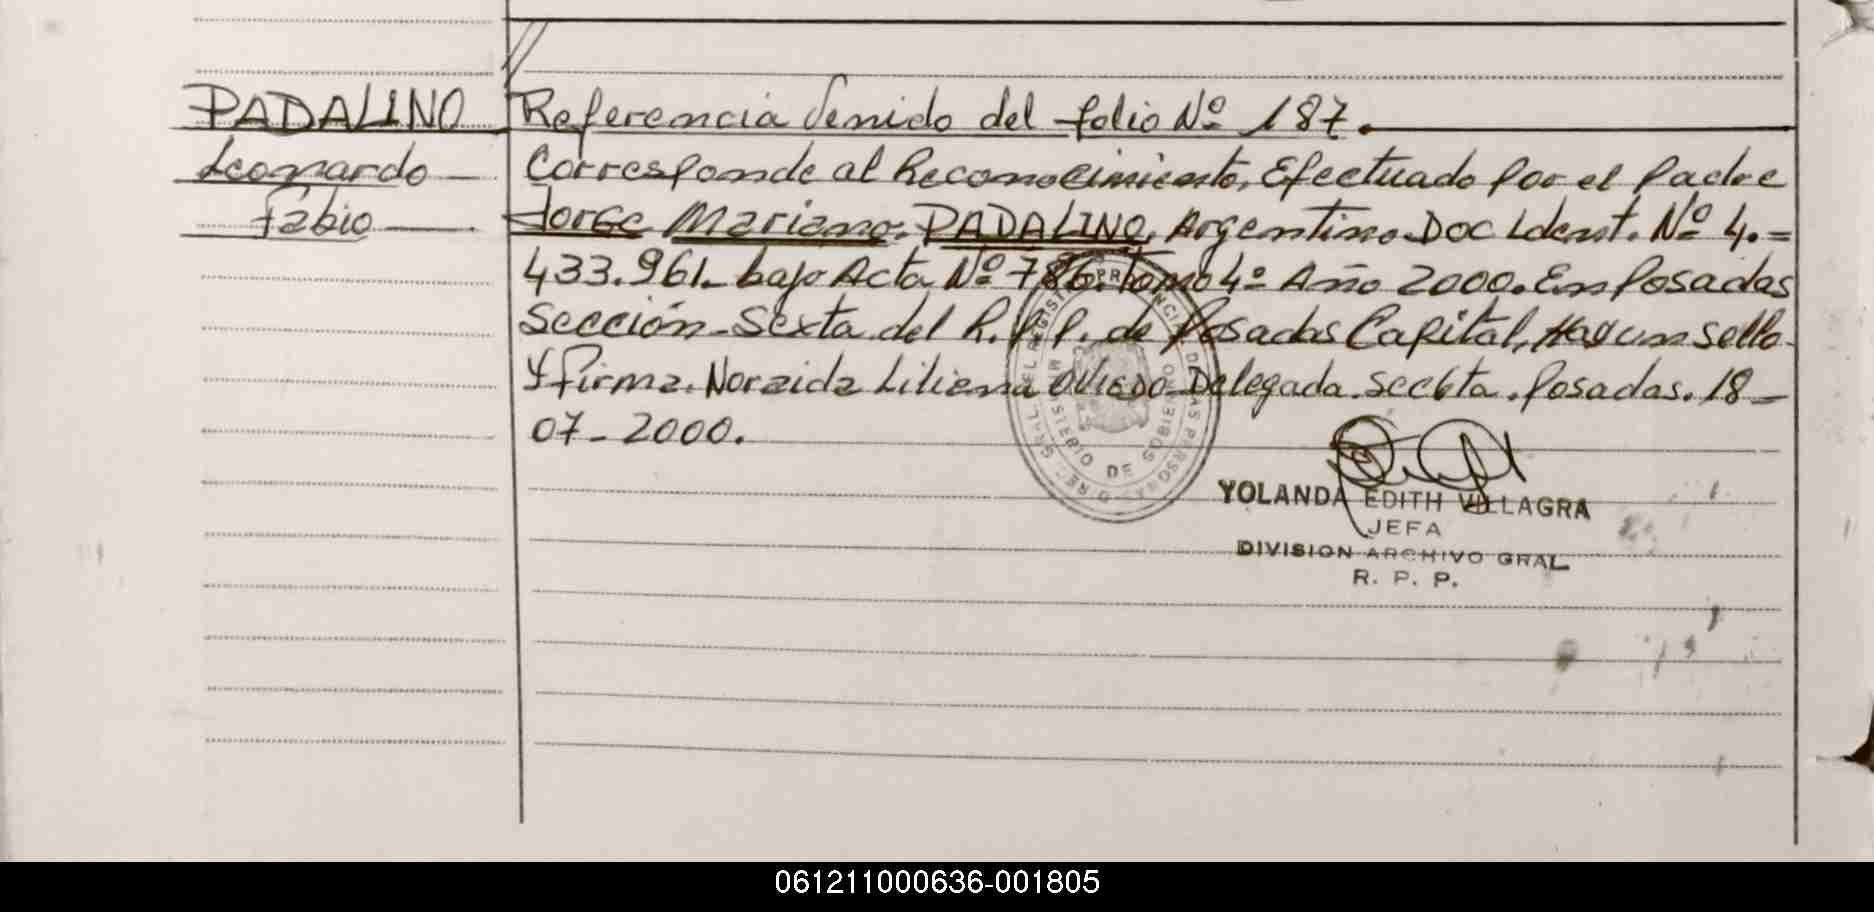 PADALINO
Leonardo
Fabio
Referencia Venido del folio Nº 187.
Corresponde al Reconocimiento, Efectuado por el Padre
Jorge Mariano, PADALINO, Argentino Doc Ident. Nº 4.=
433.961. bajo Acta Nº 786. Tomo 4º Año 2000. En Posadas
Sección Sexta del R.P.P. de Posadas Capital, Hay un sello
y firma. Noraida Liliana Oviedo Delegada. Secc6ta. Posadas. 18-
07-2000.
PROVINCIAL DE LAS PERSONAS
MINISTERIO DE GOBIERNO
YOLANDA EDITH VILLAGRA
JEFA
DIVISION ARCHIVO GRAL
R. P. P.
061211000636-001805